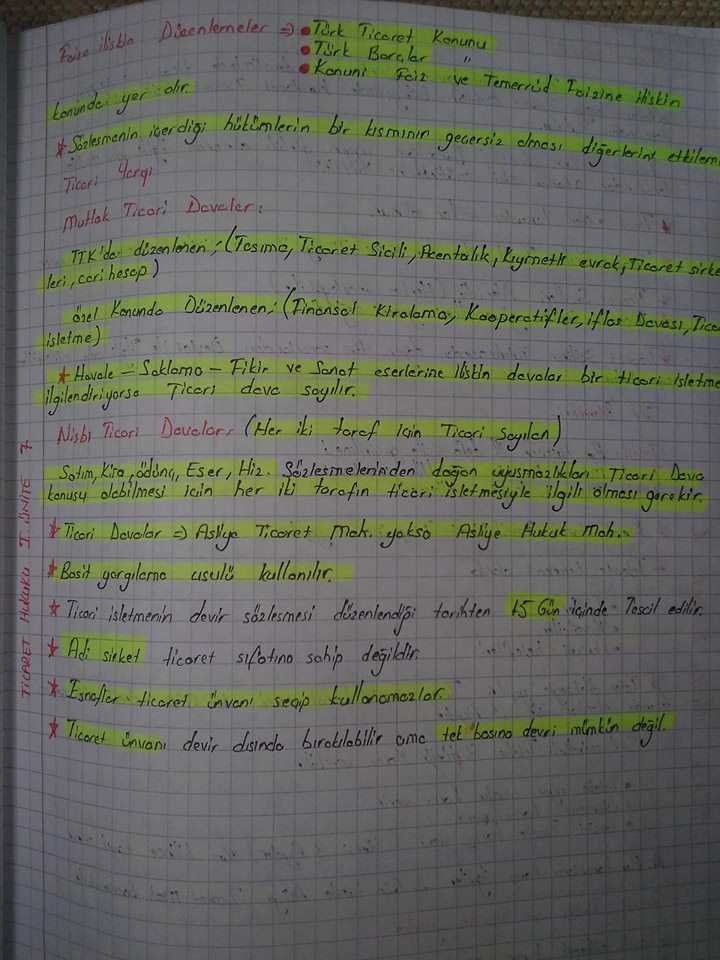 Faize ilişkin Düzenlemeler => • Türk Ticaret Kanunu
• Türk Borçlar "
• Kanuni Faiz ve Temerrüd Faizine ilişkin
kanunda yer alır.
* Sözleşmenin içerdiği hükümlerin bir kısmının geçersiz olması diğerlerini etkilem
Ticari Yargı
Mutlak Ticari Davalar:
TTK'da düzenlenen; (Taşıma, Ticaret Sicili, Acentalık, Kıymetli evrak, Ticaret şirket
leri, cari hesap)
özel Kanunda Düzenlenen; (Finansal Kiralama, Kooperatifler, iflas Davası, Tica
işletme)
* Havale – Saklama – Fikir ve Sanat eserlerine ilişkin davalar bir ticari işletme
ilgilendiriyorsa Ticari dava sayılır.
Nisbi Ticari Davalar: (Her iki taraf için Ticari Sayılan)
Satım, Kira, ödünç, Eser, Hiz. Sözleşmelerinden doğan uyuşmazlıkları Ticari Dava
konusu olabilmesi için her iki tarafın ticari işletmesiyle ilgili olması gerekir.
* Ticari Davalar => Asliye Ticaret Mah. yoksa Asliye Hukuk Mah.
* Basit yargılama usulü kullanılır.
* Ticari işletmenin devir sözleşmesi düzenlendiği tarihten 15 Gün içinde Tescil edilir.
* Adi şirket ticaret sıfatına sahip değildir.
* Esnaflar ticaret ünvanı seçip kullanamazlar.
* Ticaret ünvanı devir dışında bırakılabilir ama tek başına devri mümkün değil.
TİCARET HUKUKU I. ÜNİTE 7